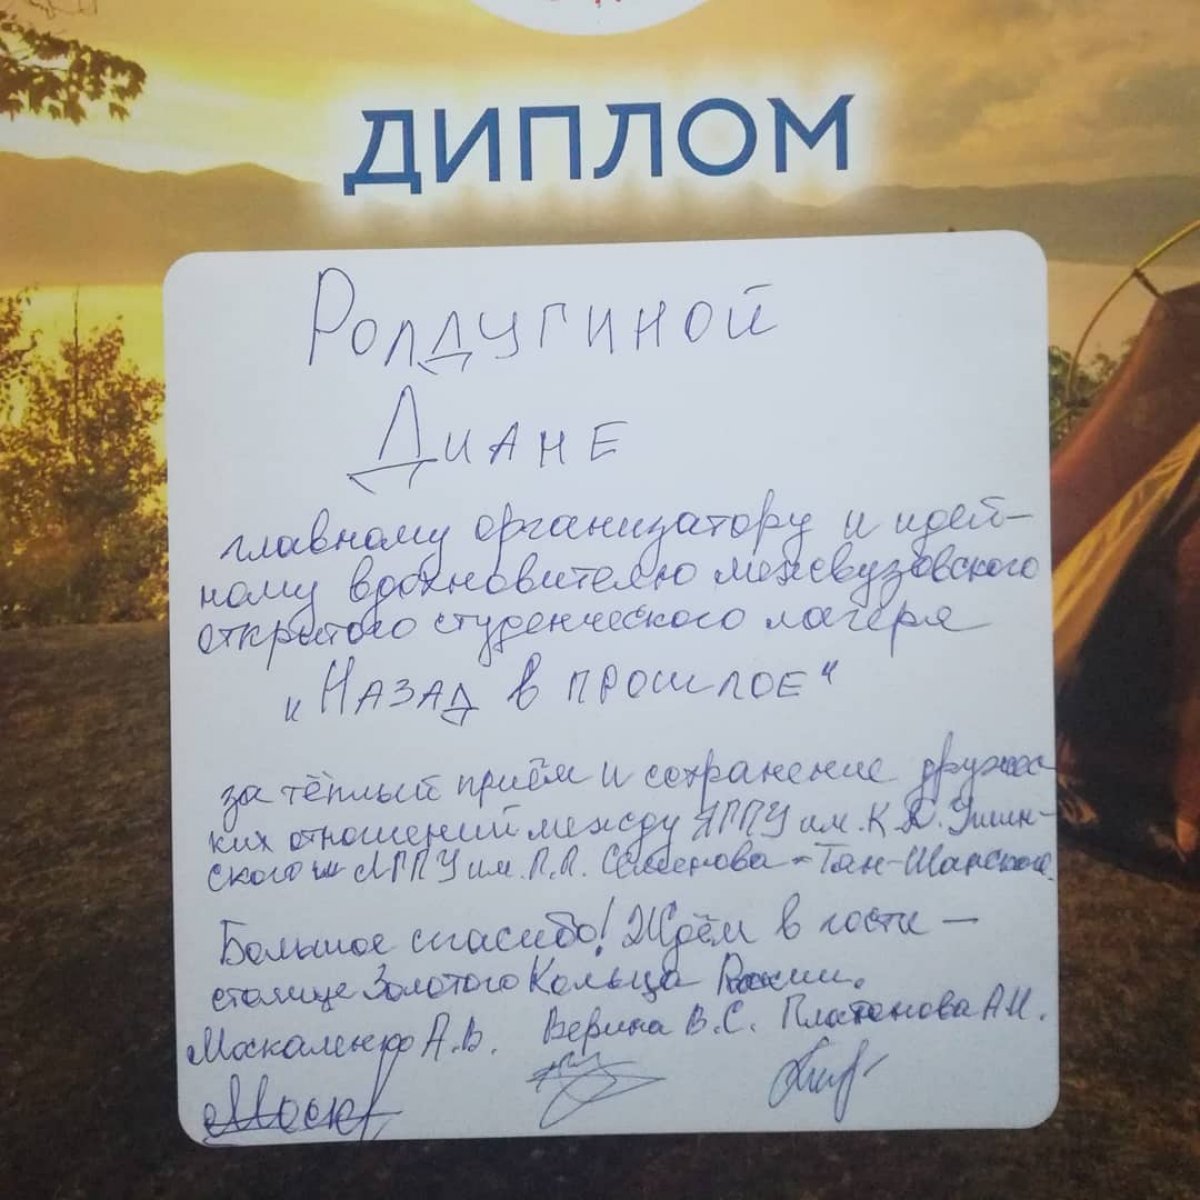 ДИПЛОМ
Ролдугиной
Диане
главному организатору и идей-
ному вдохновителю межвузовского
открытого студенческого лагеря
"Назад в прошлое"
за тёплый приём и сохранение дружес-
ких отношений между ЯГПУ им. К.Д. Ушин-
ского и ЛГПУ им. П.П. Семенова-Тян-Шанского.
Большое спасибо! Ждём в гости —
столице Золотого Кольца России.
Москаленко А.В. Верина В.С. Платонова А.И.